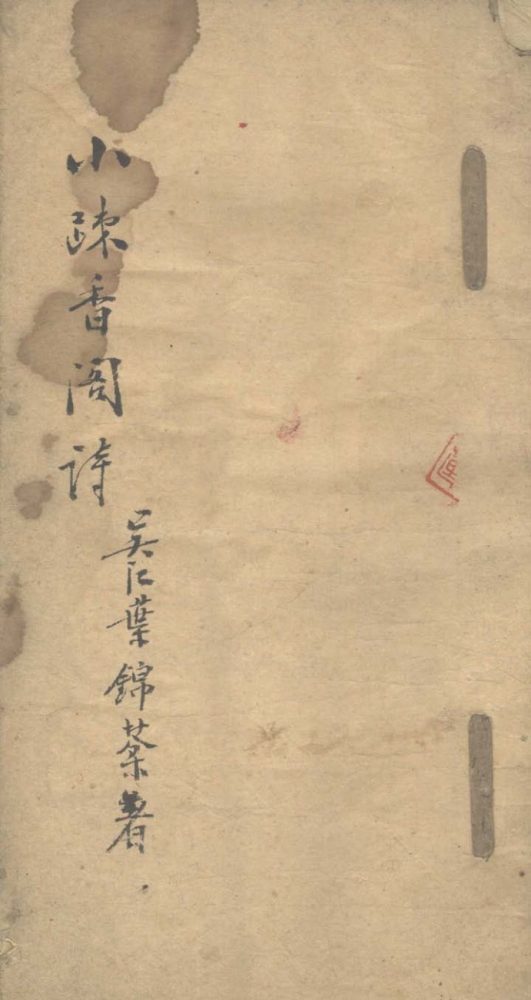 小疎香閣詩
吳仁葉錦棻著